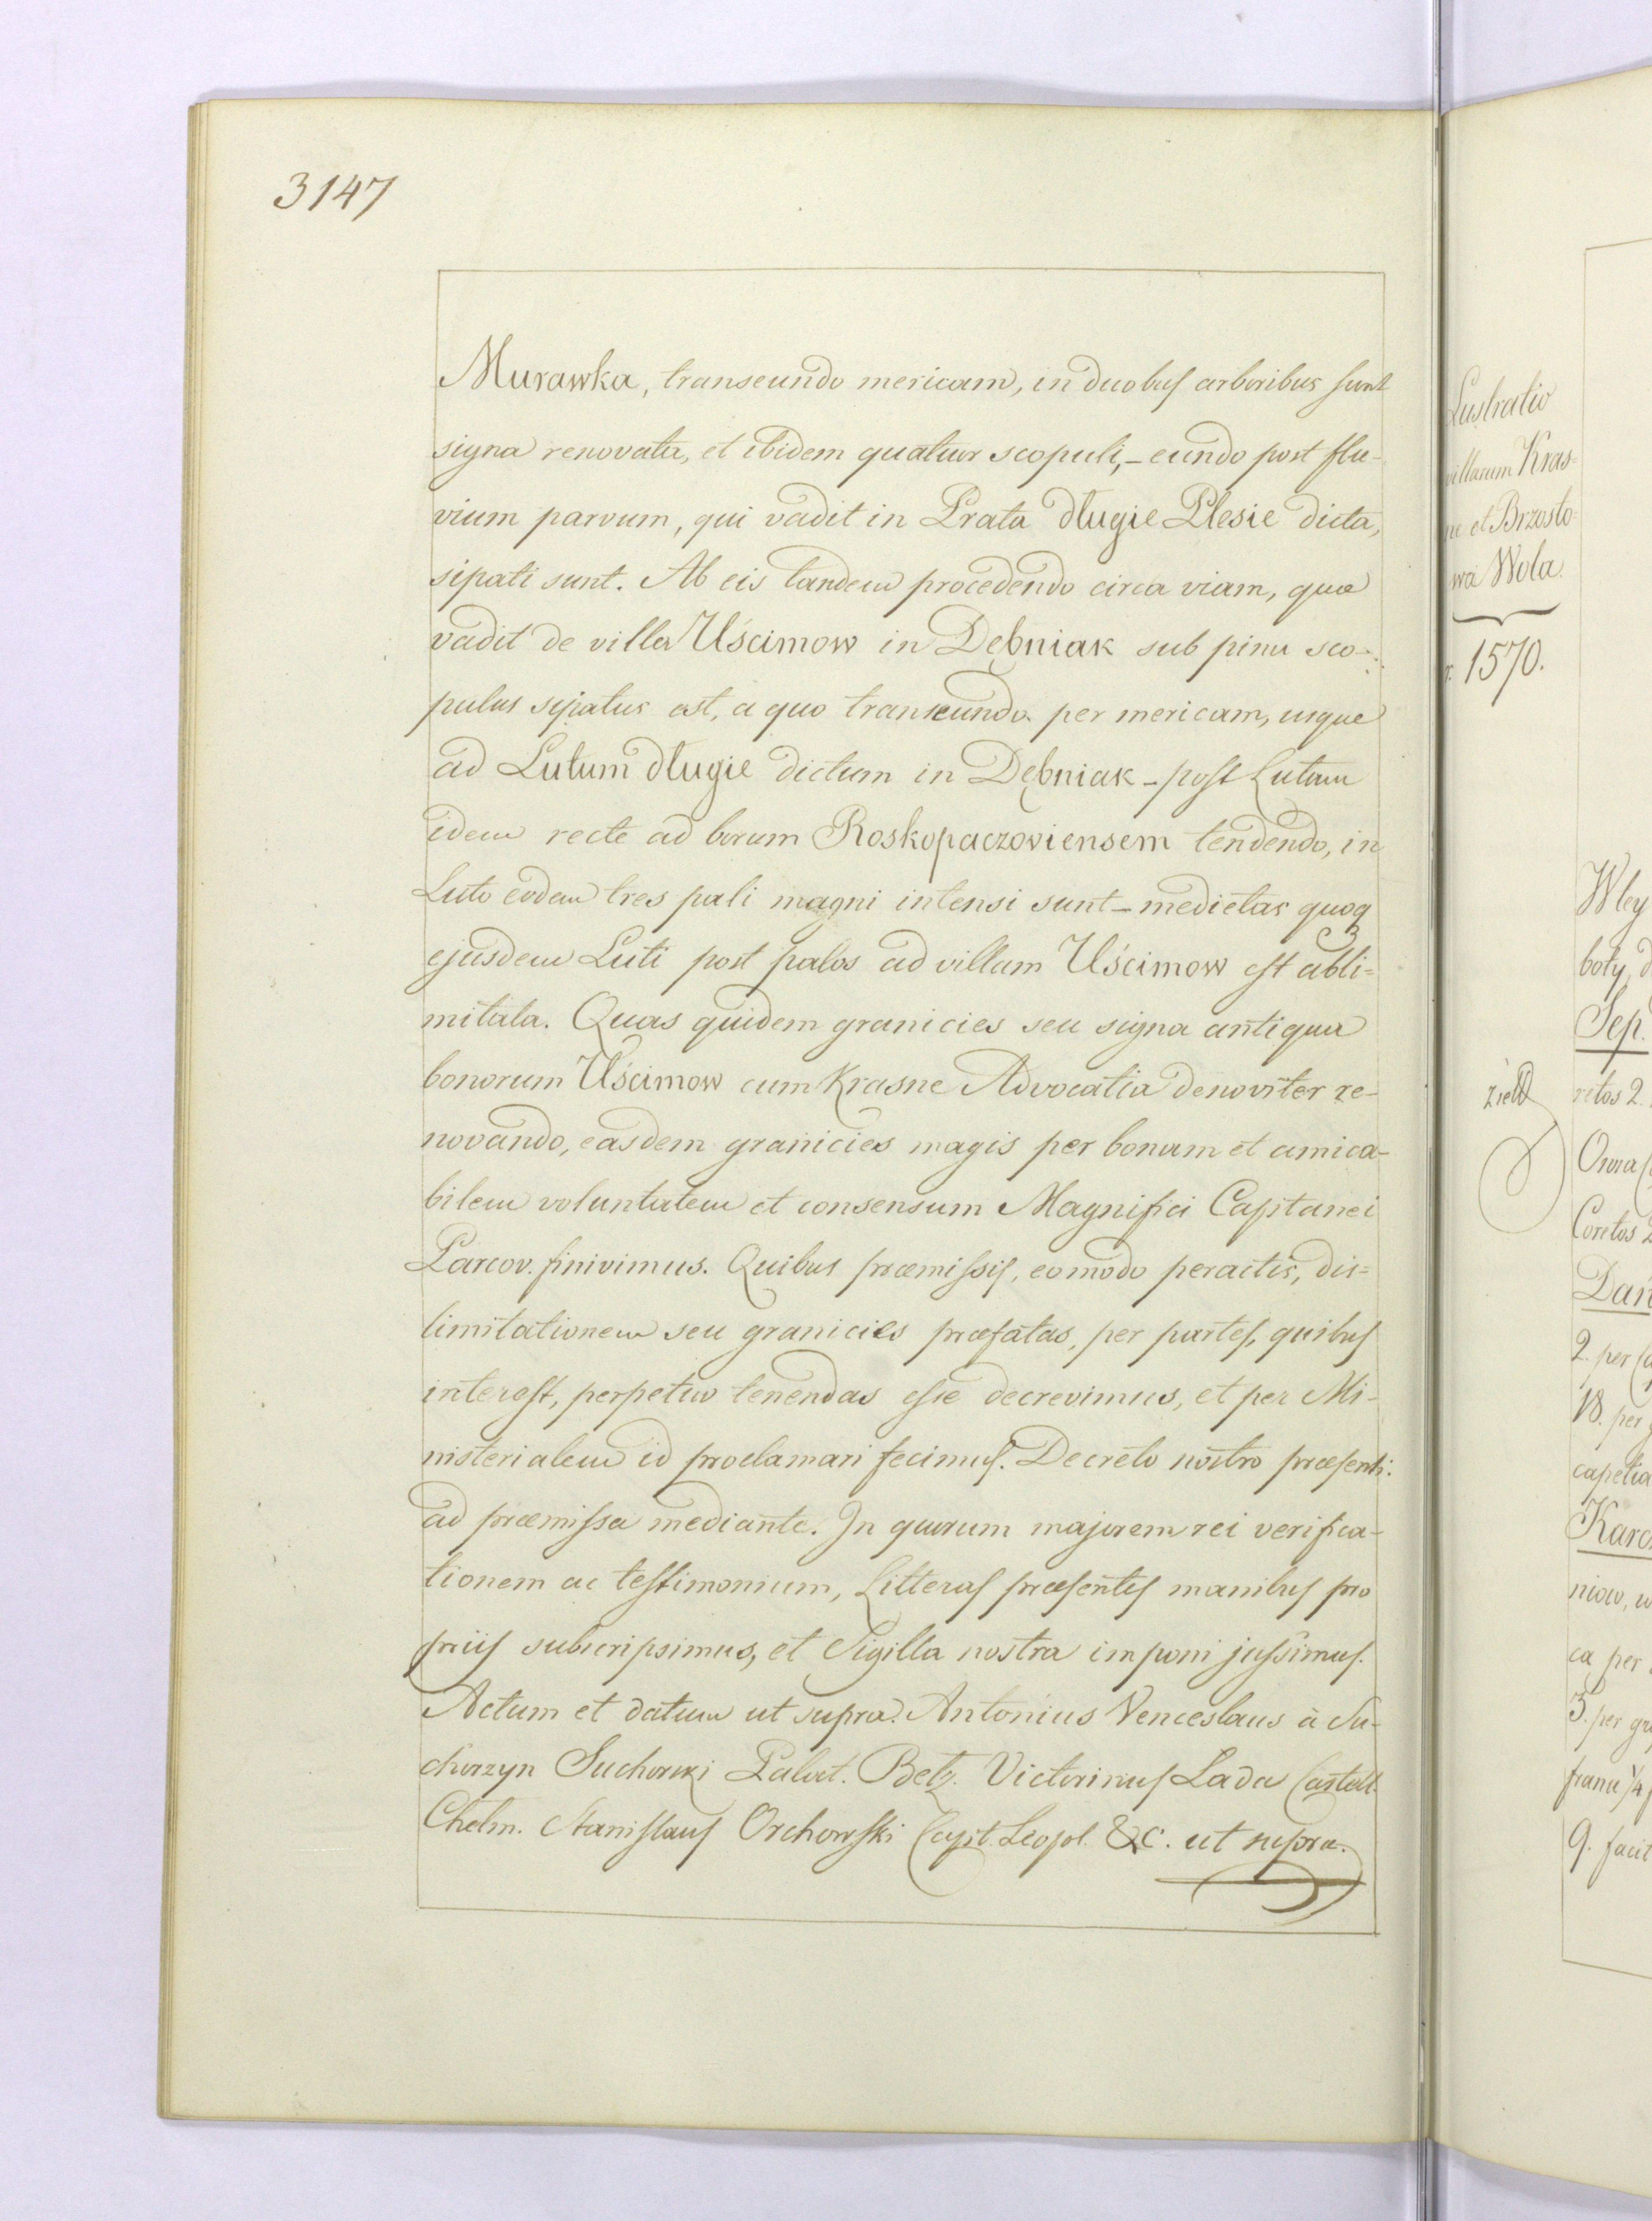 3147
Murawka, transeundo mericam, in duobus arboribus sunt
signa renovata, et ibidem quatuor scopuli, - eundo post flu-
vium parvum, qui vadit in Prata długie Plesie dicta,
sipati sunt. Ab eis tandem procedendo circa viam, quæ
vadit de villa Uścimow in Dębniak sub pinu sco-
pulus sipatus est, a quo transeundo per mericam, usque
ad Lutum długie dictum in Dębniak - post Lutum
idem recte ad borum Roskopaczoviensem tendendo, in
Luto eodem tres pali magni intensi sunt - medietas quoq
ejusdem Luti post palos ad villam Uścimow est abli=
mitata. Quas quidem granicies seu signa antiqua
bonorum Uścimow cum Krasne Advocatia denoviter re-
novando, easdem granicies magis per bonam et amica-
bilem voluntatem et consensum Magnifici Capitanei
Parcov. finivimus. Quibus præmissis, eo modo peractis, dis=
limitationem seu granicies præfatas, per partes, quibus
interest, perpetuo tenendas esse decrevimus, et per Mi-
nisterialem id proclamari fecimus. Decreto nostro præsenti
ad præmissa mediante. In quorum majorem rei verifica-
tionem ac testimonium, Litteras præsentes manibus pro
priis subscripsimus, et Sigilla nostra imponi jussimus.
Actum et datum ut supra. Antonius Venceslaus à Su-
chorzyn Suchorski Palat. Belz. Victorinus Lada Castell.
Chelm. Stanislaus Orchowski Capit. Leopol. &c. ut supra.
Lustratio
villarum Kras=
ne et Brzosto-
wa Wola.
1570.
Wley
boty, d
Sep.
retos 2.
Coretos 2
Dan
2. per
18. per
capetia
niow, w
ca per
3. per gr
franu 1/4
9. facit